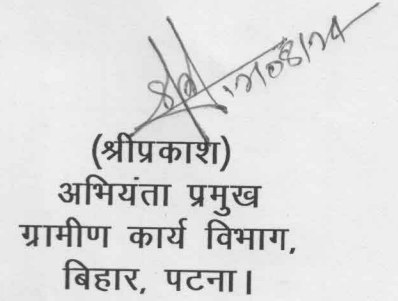 (श्रीप्रकाश)
अभियंता प्रमुख
ग्रामीण कार्य विभाग,
बिहार, पटना।